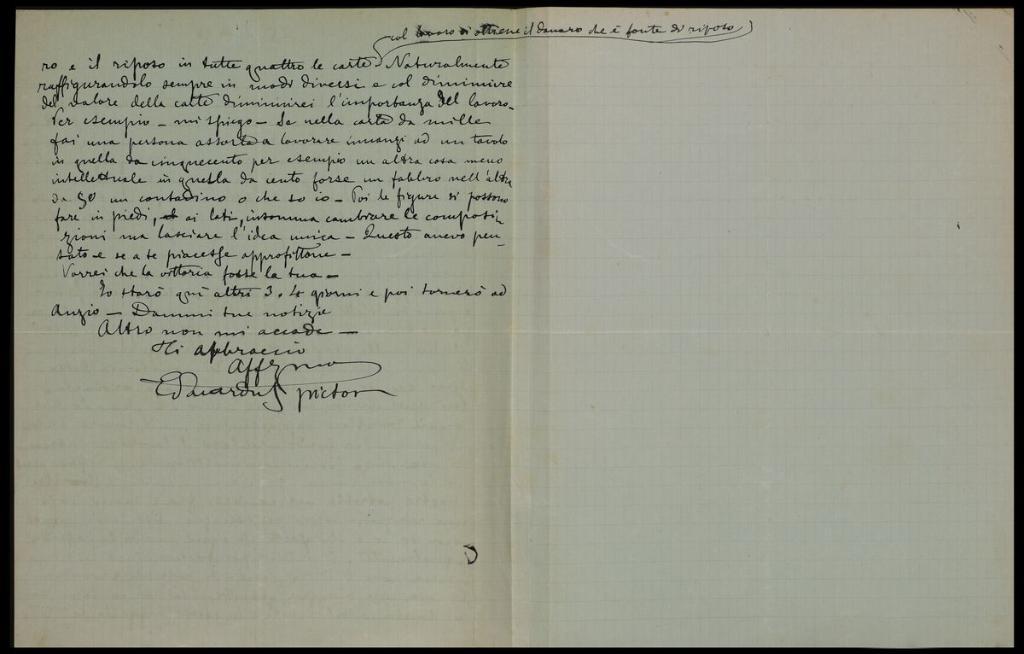 col lavoro si ottiene il danaro che è fonte di riposo)
ro e il riposo in tutte quattro le carte. Naturalmente
raffigurandolo sempre in modi diversi e col diminuire
del valore della carta diminuirei l'importanza del lavoro.
Per esempio – mi spiego – Se nella carta da mille
fai una persona assorta a lavorare innanzi ad un tavolo
in quella da cinquecento per esempio un altra cosa meno
intellettuale in quella da cento forse un fabbro nell'altra
da 50 un contadino o che so io – Poi le figure si possono
fare in piedi, ai lati, insomma cambiare le composi
zioni ma lasciare l'idea unica – Questo avevo pen
sato e se a te piacesse approfittane –
Vorrei che la vittoria fosse la tua –
Io starò quì altri 3. 4 giorni e poi tornerò ad
Anzio – Dammi tue notizie
Altro non mi accade –
Ti abbraccio
Affzmo
Eduardus pictor